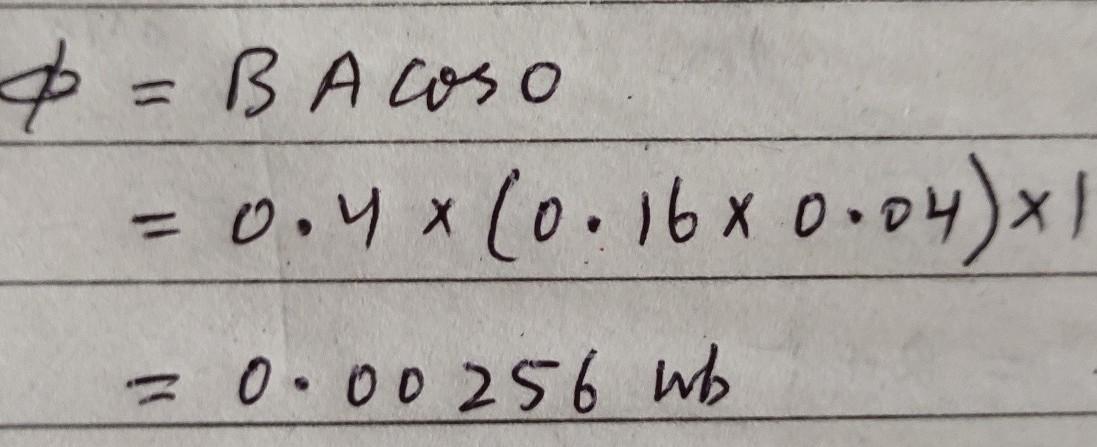 ϕ = BA cos 0
= 0.4 × (0.16 × 0.04) × 1
= 0.00256 wb